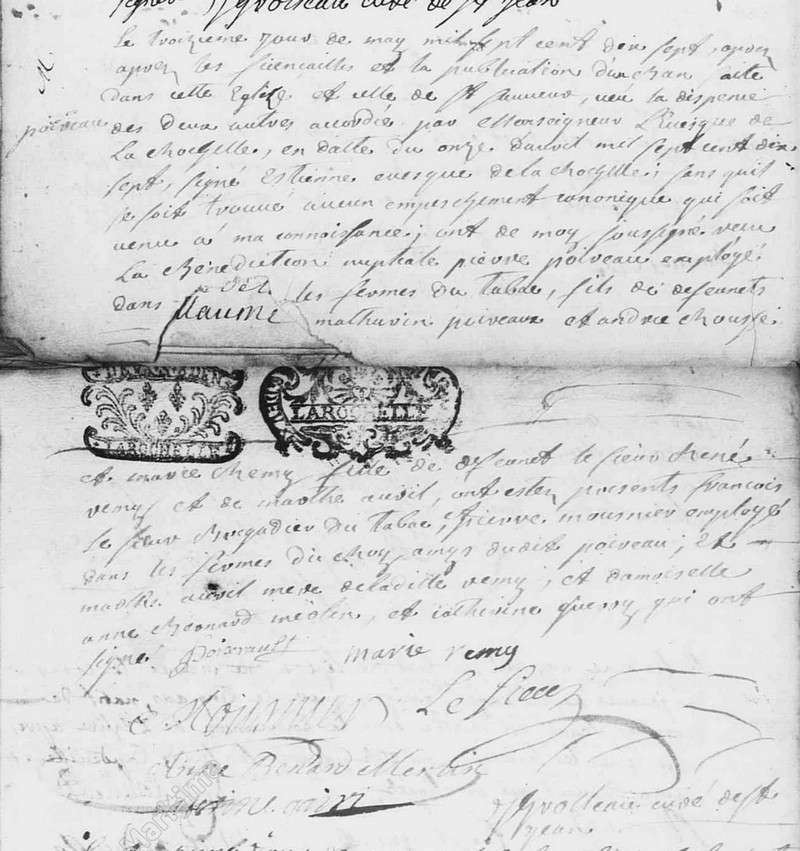 signé curé de St jean
M.
poiveau
Le troizieme jour de may mil sept cent dix sept, apres
apres les fiencailles et la publication d'un ban faite
dans cette Eglize et celle de St Sauveur, veu la dispence
des deux autres accordée par Monseigneur L'Evesque de
La Rochelle, en datte du onze D'avril mil sept cent dix
sept, signé Estienne evesque de la Rochelle, sans quil
se soit trouvé aucun empeschement canonique qui soit
venu à ma connoissance; ont de moy soussigné receu
La Bénédiction nuptiale pierre poiveau employé
dans les fermes du tabac, fils de defeunts
mathurin poiveau et andrée
GEN. LA ROCHELLE
LA ROCHELLE
et marie Remy fille de defeunt le sieur René
remy et de marthe auvil, ont estez presents françois
Le sieur Brigadier du tabac, pierre mousnier employé
dans les fermes du Roy amys dudit poiveau; et
marthe auvil mere de laditte remy; et damoiselle
anne Renard et catherine qui ont
signé Poivault marie remy
Anne Renard
curé de St
jean
Maritime